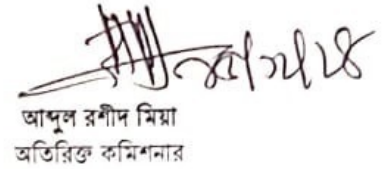 আব্দুল রশীদ মিয়া
অতিরিক্ত কমিশনার